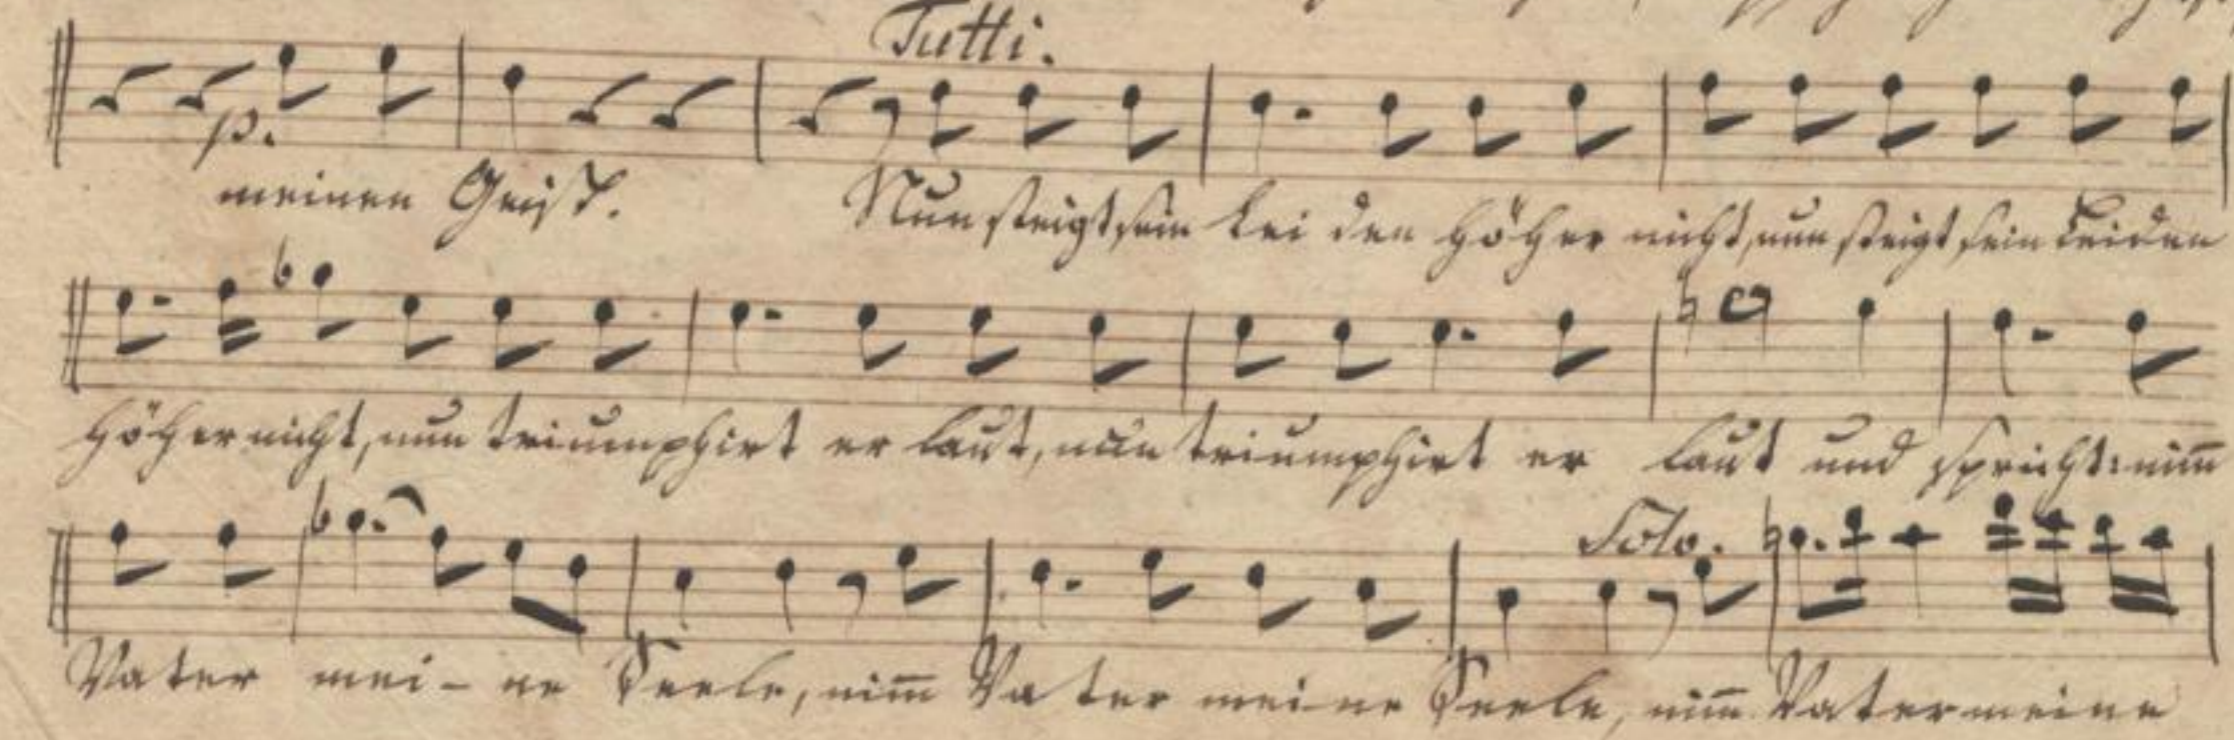 Tutti.
p.
meinen Geist. Nun steigt sein Leiden höher nicht, nun steigt sein Leiden
höher nicht, nun triumphirt er laut, nun triumphirt er laut und spricht: nim̅
Solo.
Vater mei- ne Seele, nim̅ Vater meine Seele, nim̅ Vater meine